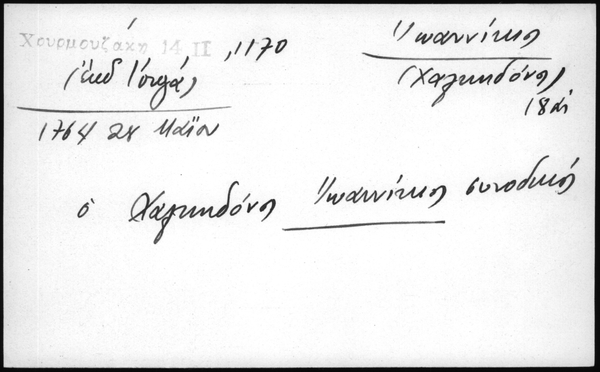 Χουρμουζάκη 14 II, 1170
(ἐκδ Ἰόργά)
1764 28 Μαΐου
Ἰωαννίκιος
(Χαλκηδόνος)
18 αἰ
ὁ Χαλκηδόνος Ἰωαννίκιος συνοδικός